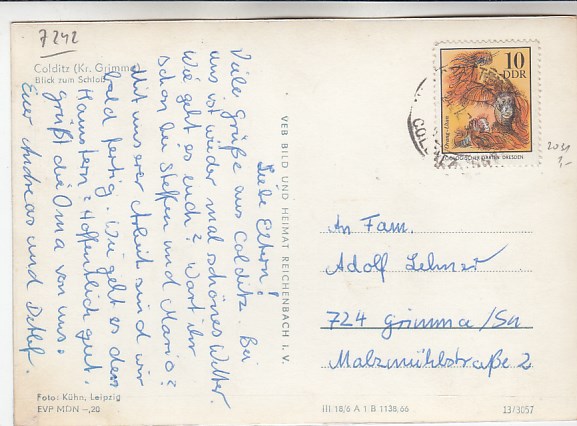 7242
Colditz (Kr. Grimma)
Blick zum Schloß
Liebe Eltern!
Viele Grüße aus Colditz. Bei
uns ist wieder mal schönes Wetter.
Wie geht es euch? Wart ihr
schon bei Steffen und Mario?
Mit unserer Arbeit sind wir
bald fertig. Wie geht es den
Hamstern? Hoffentlich gut.
grüßt die Oma von uns.
Euer Andreas und Detlef.
VEB BILD UND HEIMAT REICHENBACH I. V.
10
DDR
Orang-Utan
ZOOLOGISCHER GARTEN DRESDEN
2031
An Fam.
Adolf Lehner
724 Grimma/Sa
Malzmühlstraße 2
Foto: Kühn, Leipzig
EVP MDN -,20
III/18/6 A 1 B 1138/66
13/3057